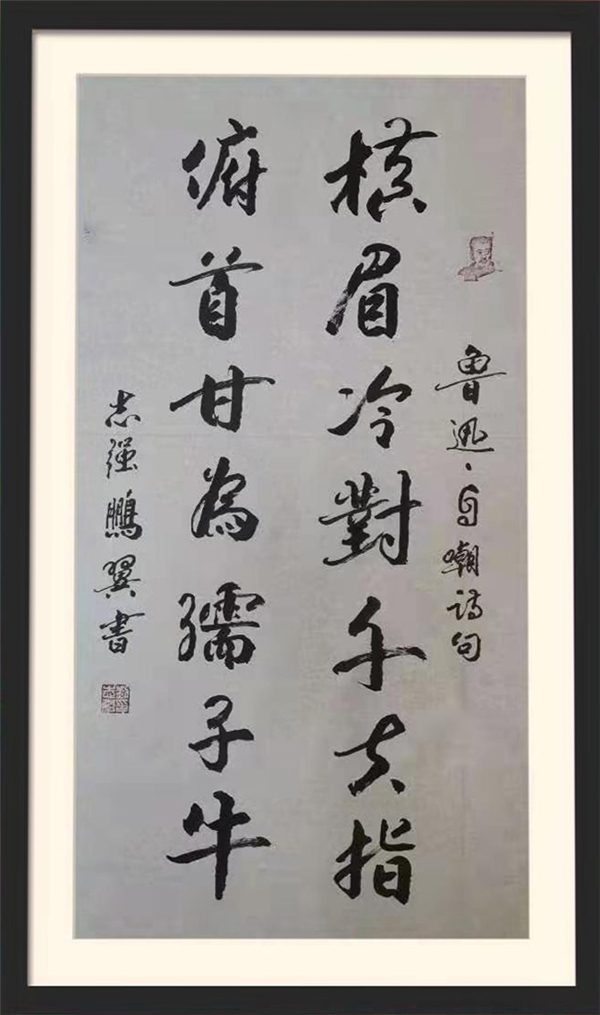 鲁迅、自嘲诗句
横眉冷對千夫指
俯首甘为孺子牛
志强鹏翼書